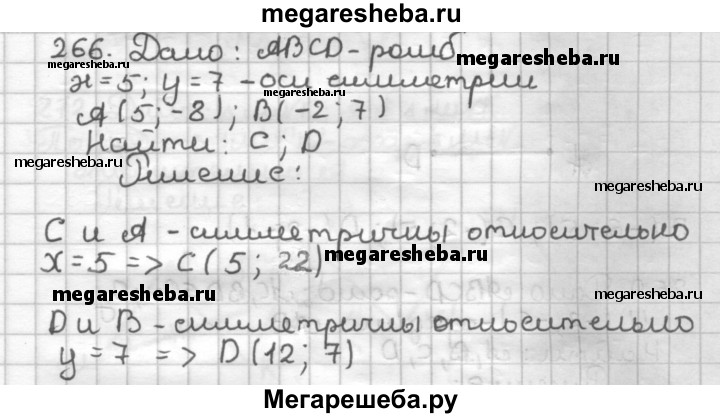 megaresheba.ru
266. Дано: ABCD-ромб
megaresheba.ru
megaresheba.ru
x=5; y=7 -оси симметрии
megaresheba.ru
A(5;-8); B(-2;7)
Найти: C; D
megaresheba.ru
Решение:
megaresheba.ru
C и A - симметричны относительно
x=5 => C(5; 22)
megaresheba.ru
megaresheba.ru
megaresheba.ru
D и B - симметричны относительно
y=7 => D(12; 7)
Мегарешеба.ру